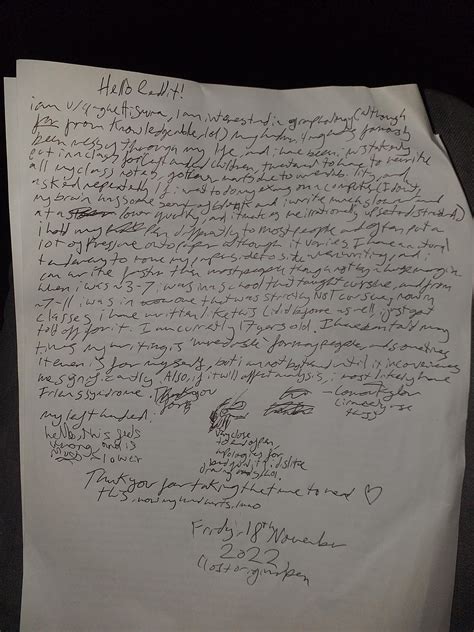 Hello Reddit!
i am u/ , I am interested in graphology (although
far from knowledgeable, lol) my handwriting has famously
been messy through my life, and i have been mistakenly
put in a class for left handed children, threatened to have to rewrite
all my class notes, got low marks due to unreadability, and
asked repeatedly if i was to do my exams on a computer (I don't,
my brain has some sort of block and i write much slower and
at a lower quality, and it makes me irrationally upset and stressed)
i hold my pen differently to most people and often put a
lot of pressure onto paper although it varies. I have a natural
tendency to move my paper side to side when writing, and i
can write faster than most people though not by a huge margin
when i was ~3-7, i was in a school that taught cursive, and from
~7-11 i was in one that was strictly NOT cursive, now in
classes i have written like this (i did before as well, i just got
told off for it. I am currently 17 years old. I have been told many
times my writing is 'unreadable' for many people, and sometimes
it even is for myself, but i am not bothered until it inconveniences
me significantly. Also, if it will affect analysis, i most likely have
Irlens syndrome. Thank you
my left handed:
hello, this feels
wrong and is
MUCH slower
very close
to end of pen,
apologies for
bad quality. i dislike
drawing mostly lol.
- lost origin pen
Thank you for taking the time to read ♡
this. now my hand hurts. lmao
Friday, 18th November
2022
(lost original pen